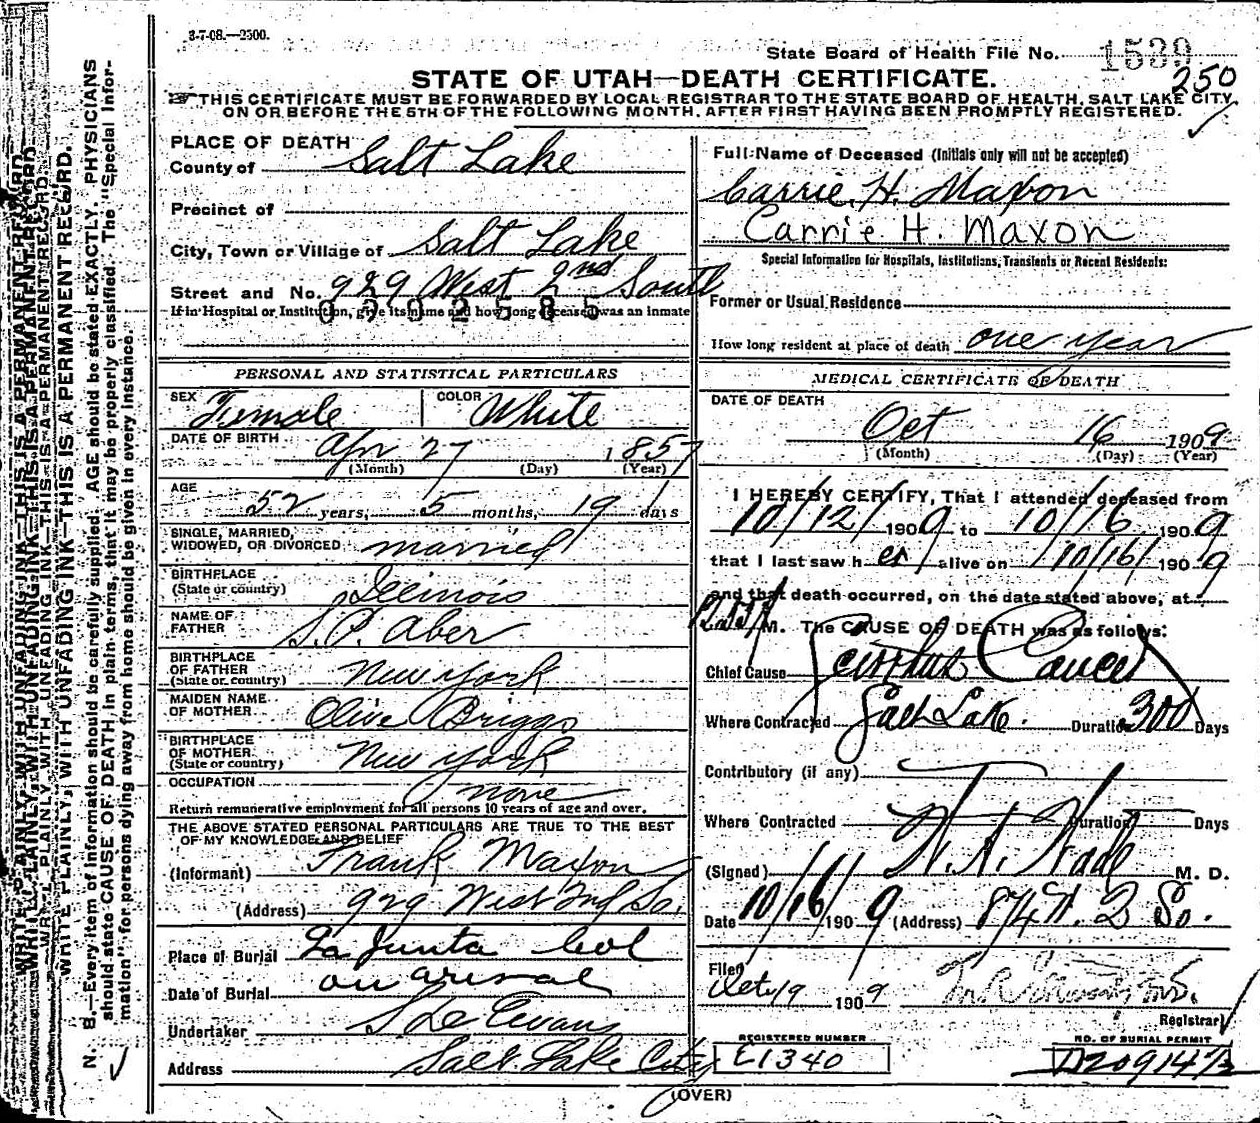 3-7-08.—2500.
State Board of Health File No. 1539
250
STATE OF UTAH—DEATH CERTIFICATE.
THIS CERTIFICATE MUST BE FORWARDED BY LOCAL REGISTRAR TO THE STATE BOARD OF HEALTH, SALT LAKE CITY,
ON OR BEFORE THE 5TH OF THE FOLLOWING MONTH, AFTER FIRST HAVING BEEN PROMPTLY REGISTERED.
WRITE PLAINLY, WITH UNFADING INK—THIS IS A PERMANENT RECORD.
N. B.—Every item of information should be carefully supplied. AGE should be stated EXACTLY. PHYSICIANS
should state CAUSE OF DEATH in plain terms, that it may be properly classified. The "Special Infor-
mation" for persons dying away from home should be given in every instance.
PLACE OF DEATH
County of Salt Lake
Precinct of
City, Town or Village of Salt Lake
Street and No. 929 West 2nd South
0992585
If in Hospital or Institution, give its name and how long deceased was an inmate
PERSONAL AND STATISTICAL PARTICULARS
SEX Female COLOR White
DATE OF BIRTH Apr 27 1857
(Month) (Day) (Year)
AGE
52 years, 5 months, 19 days
SINGLE, MARRIED,
WIDOWED, OR DIVORCED married
BIRTHPLACE
(State or country) Illinois
NAME OF
FATHER S. P. Aber
BIRTHPLACE
OF FATHER
(State or country) New York
MAIDEN NAME
OF MOTHER Olive Briggs
BIRTHPLACE
OF MOTHER
(State or country) New York
OCCUPATION none
Return remunerative employment for all persons 10 years of age and over.
THE ABOVE STATED PERSONAL PARTICULARS ARE TRUE TO THE BEST
OF MY KNOWLEDGE AND BELIEF
(Informant) Frank Maxon
(Address) 929 West 2nd So.
Place of Burial La Junta Col
Date of Burial on arival
Undertaker S De Evans
Address Salt Lake City
Full Name of Deceased (Initials only will not be accepted)
Carrie H. Maxon
Carrie H. Maxon
Special Information for Hospitals, Institutions, Transients or Recent Residents:
Former or Usual Residence
How long resident at place of death one year
MEDICAL CERTIFICATE OF DEATH
DATE OF DEATH
Oct 16 1909
(Month) (Day) (Year)
I HEREBY CERTIFY, That I attended deceased from
10/12/ 1909 to 10/16 1909
that I last saw her alive on 10/16/ 1909
and that death occurred, on the date stated above, at
M. The CAUSE OF DEATH was as follows:
Chief Cause Cancer
Where Contracted Salt Lake. Duration 300 Days
Contributory (if any)
Where Contracted Duration Days
(Signed) M. D.
Date 10/16/ 1909 (Address) 2 So.
Filed Oct 19 1909
Registrar
REGISTERED NUMBER
E1340
NO. OF BURIAL PERMIT
(OVER)